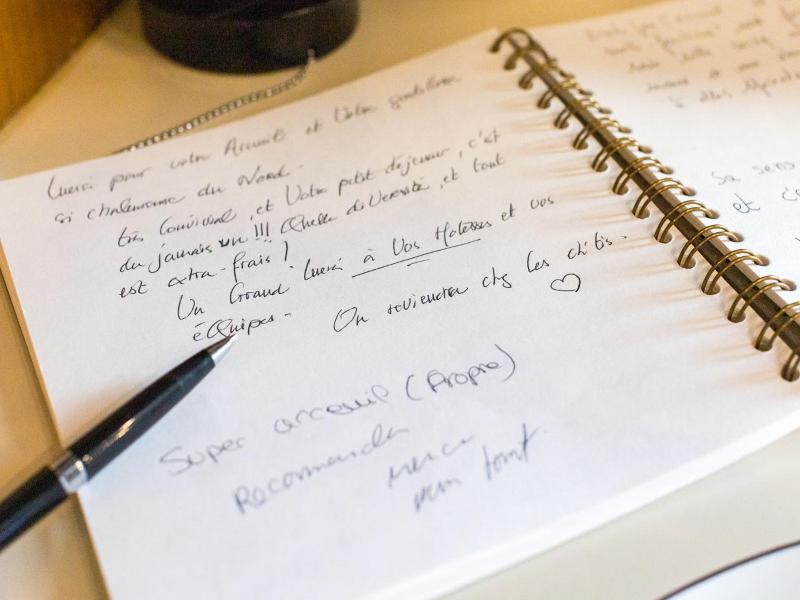 Merci pour votre Accueil et Votre gentillesse
si chaleureuse du Nord.
très Convivial, et Votre petit déjeuner, c'est
du jamais vu !!! Quelle diversité, et tout
est extra-frais !
Un Grand Merci à Vos Hôtesses et vos
éQuipes.
On reviendra chez les ch'tis.
Super arceuil (Propre)
Recommande
Merci
pour tout
sa sens
et